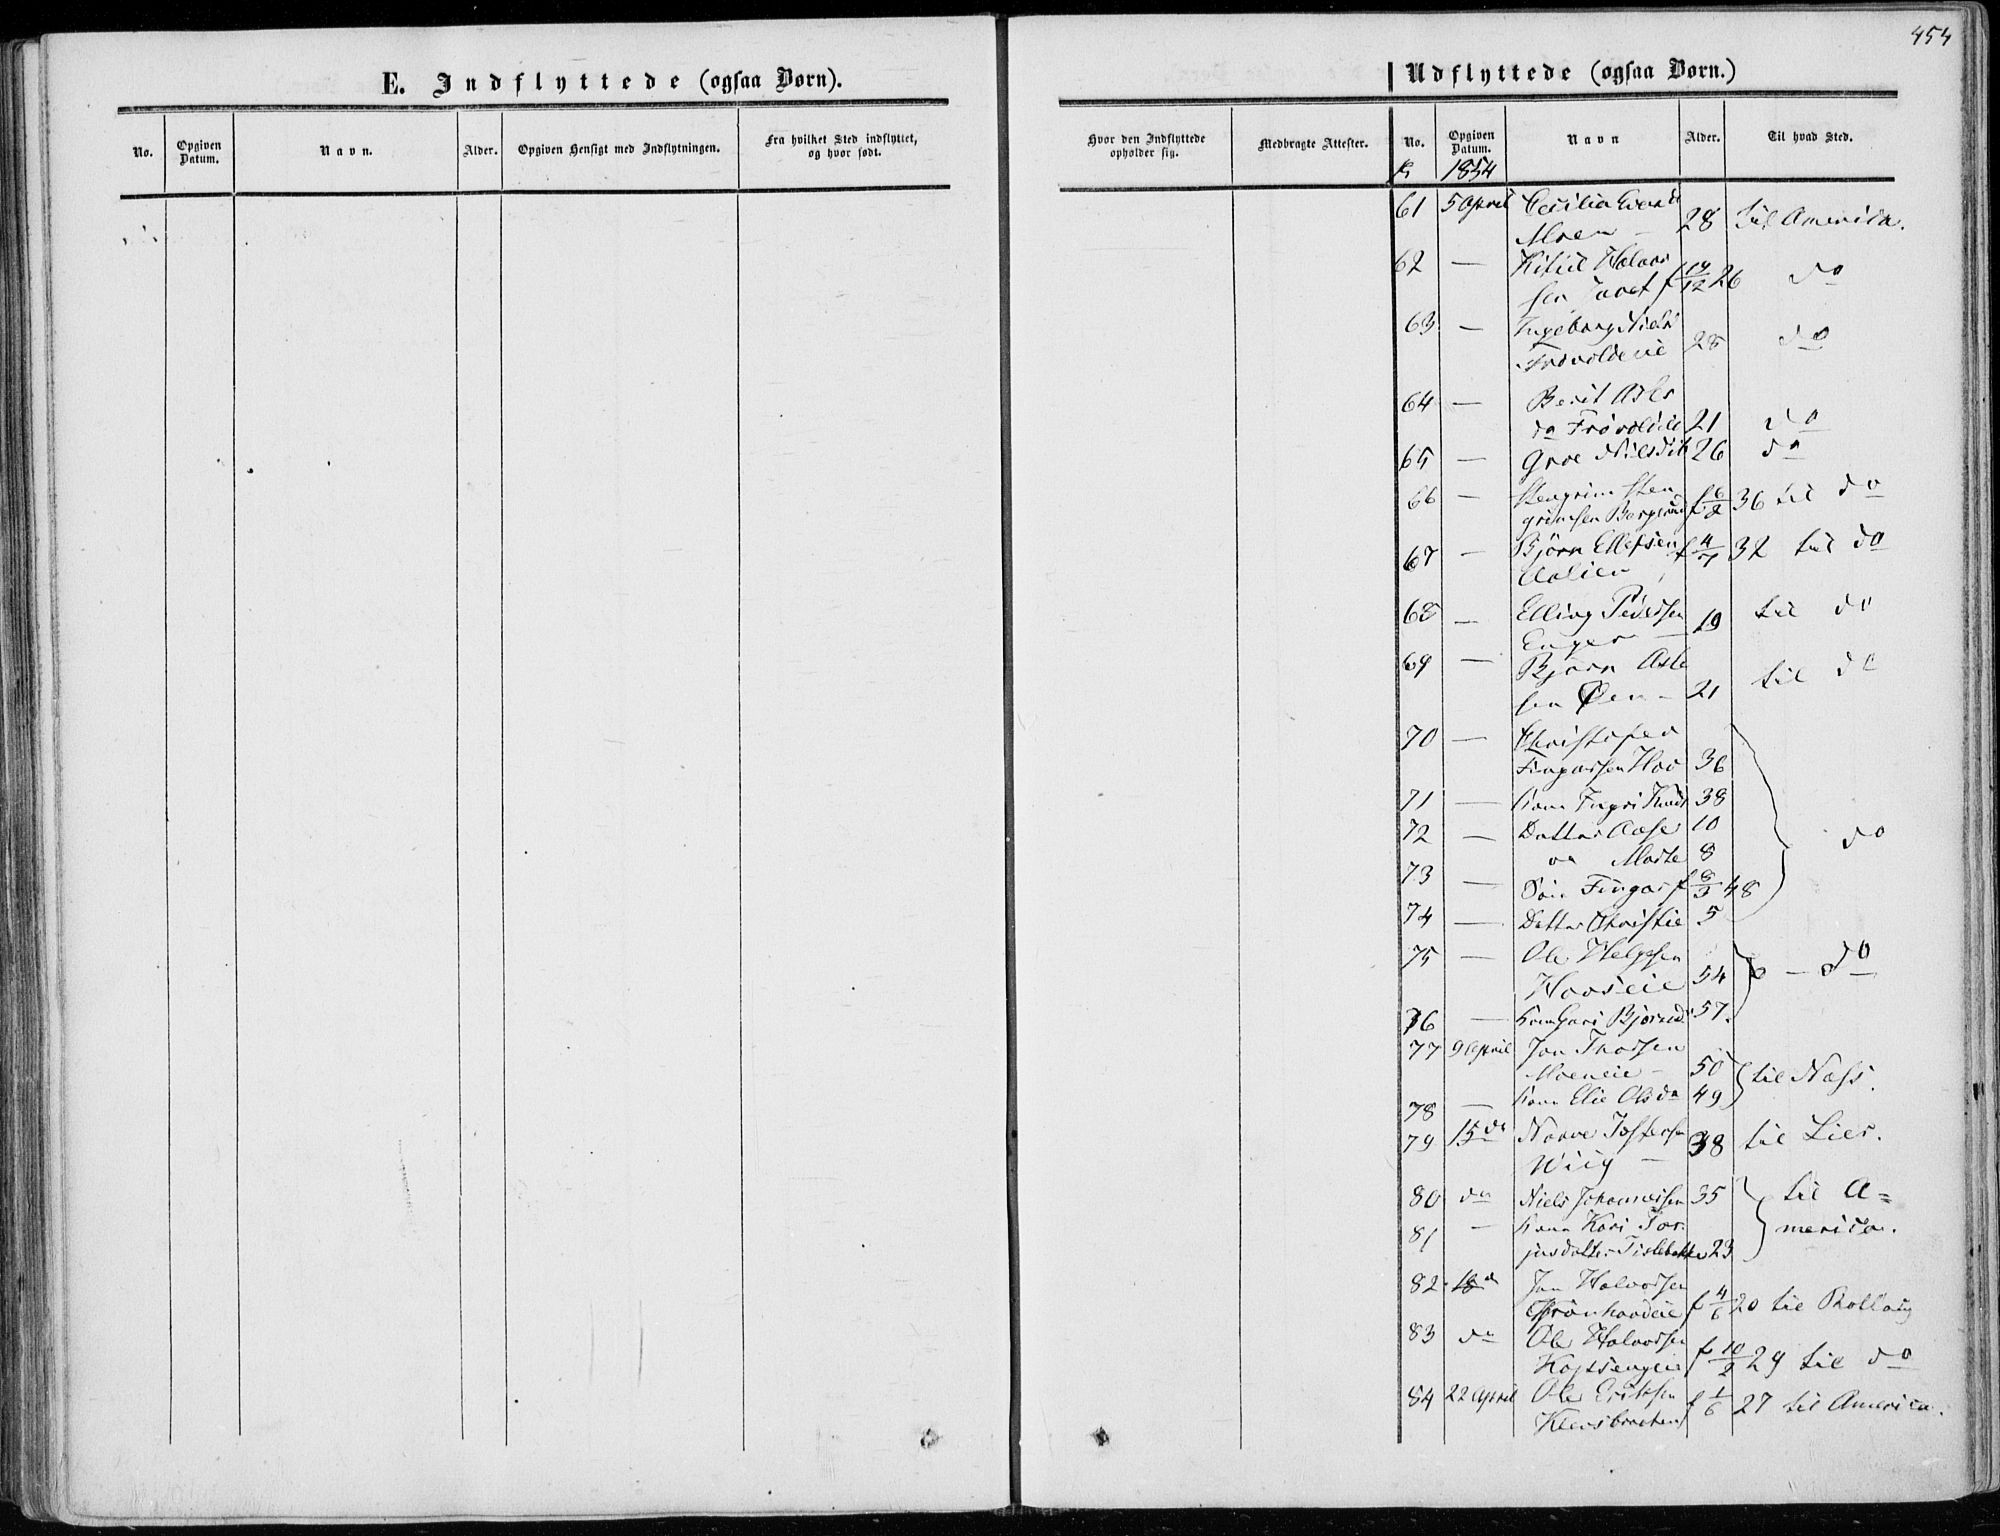 454
E. Indflyttede (ogsaa Børn).
Udflyttede (ogsaa Børn.)
No. Opgiven Datum. Navn. Alder. Opgiven Hensigt med Indflytningen. Fra hvilket Sted indflyttet, og hvor født.
Hvor den Indflyttede opholder sig. Medbragte Attester. No. Opgiven Datum. Navn Alder. Til hvad Sted.
1854
61 5 April Cecilia
Moen - 28 til America.
62 — Ketil Halvor
sen f 19/12 26 do
63 — Ingeborg Niels
28 do
64 — Berit Asle
da 21 do
65 — Groe Nilsdtr 26 do
66 — Stengrim Sten
grimsen f 6/2 36 til do
67 — Bjørn Ellefsen f 4/7 32 til do
68 — Elling Pedersen
Enger — 19 til do
69 — Bjørn Asle
sen Øen - 21 til do
70 — Christofer
Fingarsen Hov 36
71 — Kone Ingri 38
72 — Datter Aase 10
og Marte 8 do
73 — Søn Fingar f 8/3 48
74 — Datter Christie 5
75 — Ole Helgesen
Hovseie 54 — do
76 — Kone Guri Bjørnsd 57.
77 9 April Jon Thorsen
Moeneie - 50 til Næss.
78 — Kone Elie Olsda 49
79 15 do Narve
Wiig — 38 til Lier.
80 do Niels Johannessen 35 til A=
81 — Kone Kari Tor merica.
jusdatter 23
82 18 d Jon Halvorsen
f 4/6 20 til Rollaug
83 do Ole Halvorsen
f 10/2 29 til do
84 22 April Ole Eriksen
f 1/6 27 til America.